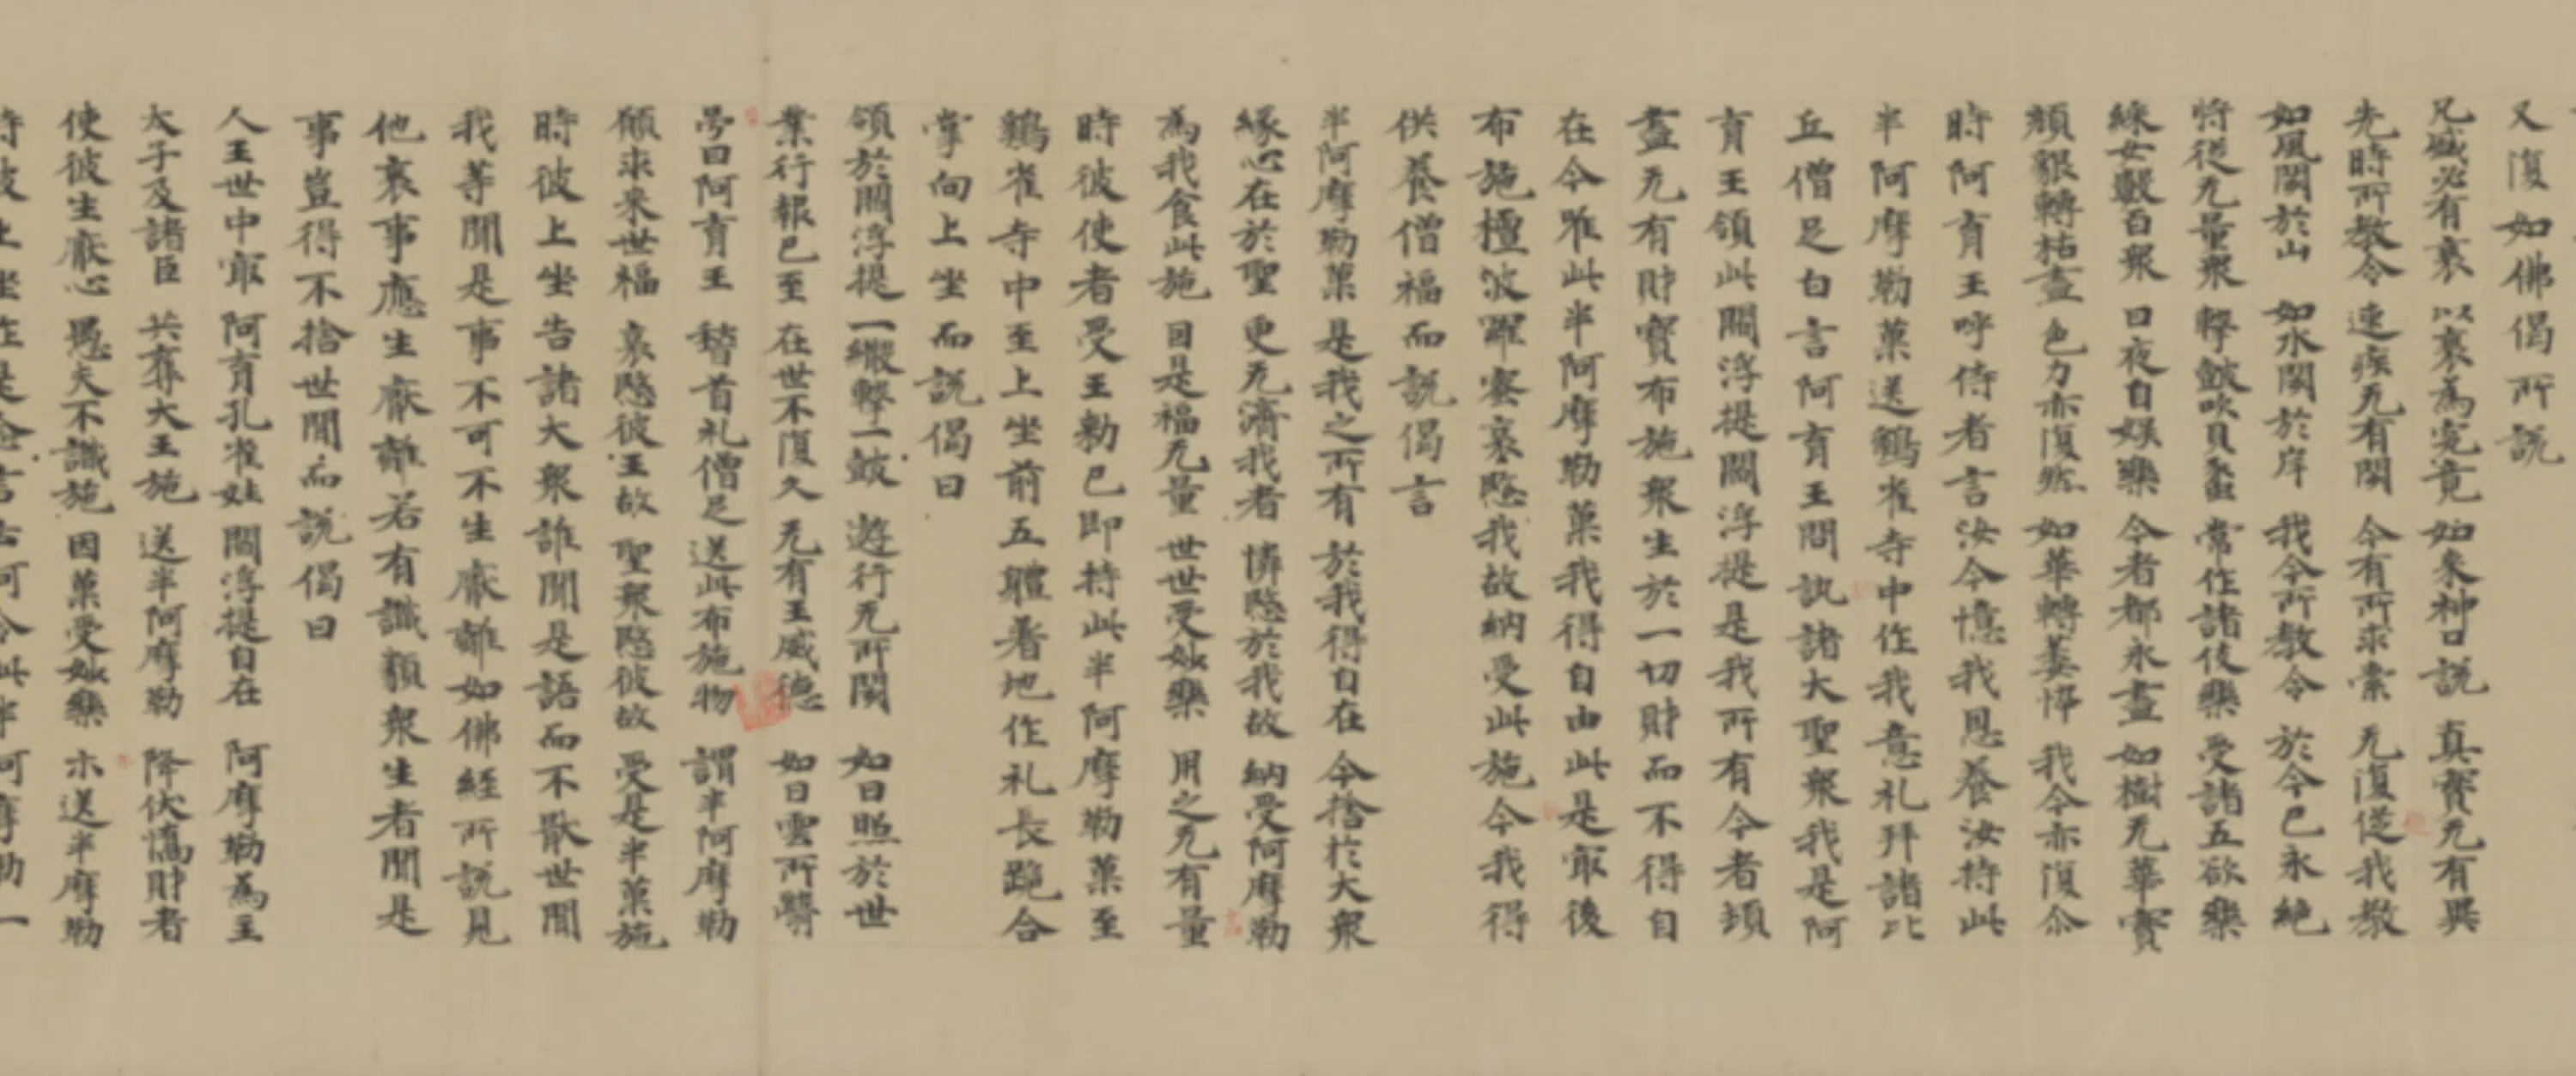 又復如佛偈所説
凡盛必有衰　以衰為究竟　如来神口説　真實无有異
先時所教令　速疾无有閡　今有所求索　无復従我教
如風閡於山　如水閡於岸　我今所教令　於今已永絶
将従无量衆　撃皷吹貝蠡　常作諸伎樂　受諸五欲樂
綵女數百衆　日夜自娱樂　今者都永盡　如樹无華實
顔貌轉枯盡　色力亦復然　如華轉萎悴　我今亦復尒
時阿育王呼侍者言汝今憶我恩養汝持此
半阿摩勒菓送鷄雀寺中作我意礼拜諸比
丘僧足白言阿育王問訊諸大聖衆我是阿
育王領此閻浮提閻浮提是我所有今者頓
盡无有財寳布施衆生於一切財而不得自
在今唯此半阿摩勒菓我得自由此是㝡後
布施檀波羅蜜哀愍我故納受此施今我得
供養僧福而説偈言
半阿摩勒菓　是我之所有　於我得自在　今捨於大衆
縁心在於聖　更无濟我者　憐愍於我故　納受阿摩勒
為我食此施　因是福无量　世世受妙樂　用之无有量
時彼使者受王勅已即持此半阿摩勒菓至
鷄雀寺中至上坐前五體著地作礼長跪合
掌向上坐而説偈曰
領於閻浮提　一繖撃一皷　遊行无所閡　如日照於世
業行報已至　在世不復久　无有王威徳　如日雲所翳
号曰阿育王　稽首礼僧足　送此布施物　謂半阿摩勒
願求来世福　哀愍彼王故　聖衆愍彼故　受是半菓施
時彼上坐告諸大衆誰聞是語而不厭世間
我等聞是事不可不生厭離如佛經所説見
他衰事應生厭離若有識類衆生者聞是
事豈得不捨世間而説偈曰
人王世中㝡　阿育孔雀姓　閻浮提自在　阿摩勒為主
太子及諸臣　共奪大王施　送半阿摩勒　降伏憍財者
使彼生厭心　愚夫不識施　因菓受妙樂　示送半摩勒
時彼上坐作是念言云何令此半阿摩勒一